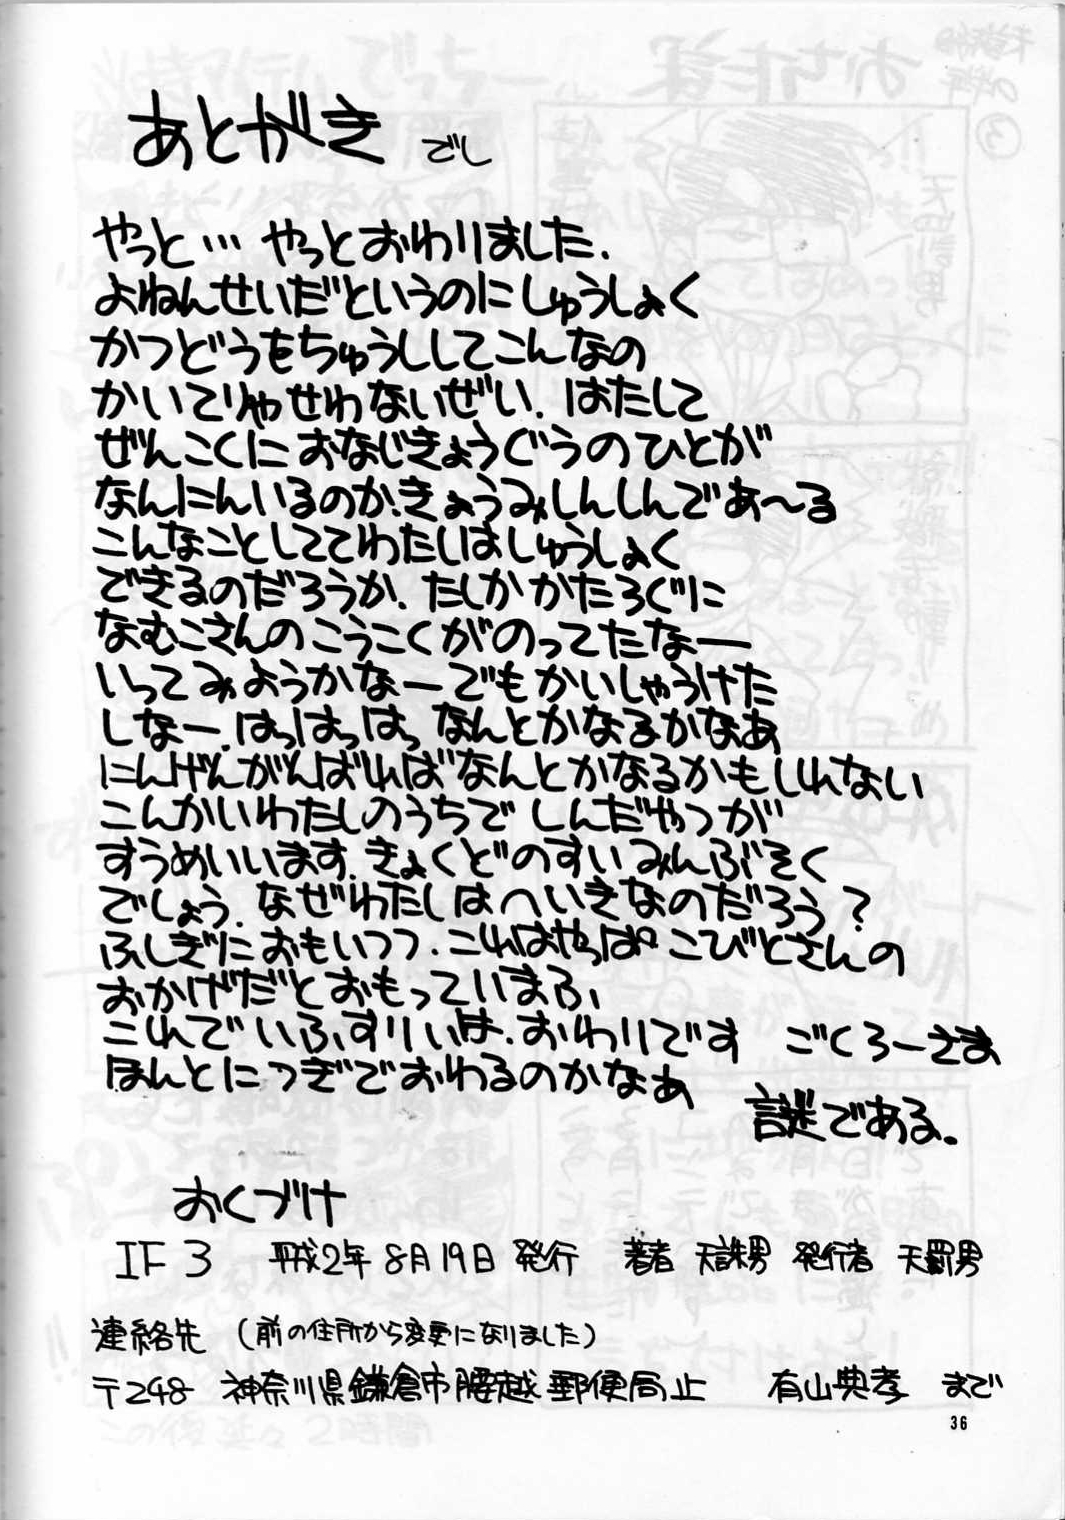 あとがき でし
やっと… やっとおわりました.
よねんせいだというのにしゅうしょく
かつどうをちゅうししてこんなの
かいてりゃせわないぜい. はたして
ぜんこくにおなじきょうぐうのひとが
なんにんいるのか.きょうみしんしんであ〜る
こんなことしててわたしはしゅうしょく
できるのだろうか. たしかかたろぐに
なむこさんのこうこくがのってたなー
いってみようかなーでもかいしゃうけた
しなー.はっはっはっなんとかなるかなあ
にんげんがんばればなんとかなるかもしれない
こんかいわたしのうちでしんだやつが
すうめいいます.きょくどのすいみんぶそく
でしょう.なぜわたしはへいきなのだろう?
ふしぎにおもいつつ.これはやっぱこびとさんの
おかげだとおもっていまふ、
これでいふすりいは.おわりです ごくろーさま
ほんとにつぎでおわるのかなぁ
謎である。
おくづけ
IF3 平成2年8月19日発行 著者 天誅男 発行者 天罰男
連絡先 (前の住所から変更になりました)
〒248 神奈川県鎌倉市腰越郵便局止 有山典孝 まで
36